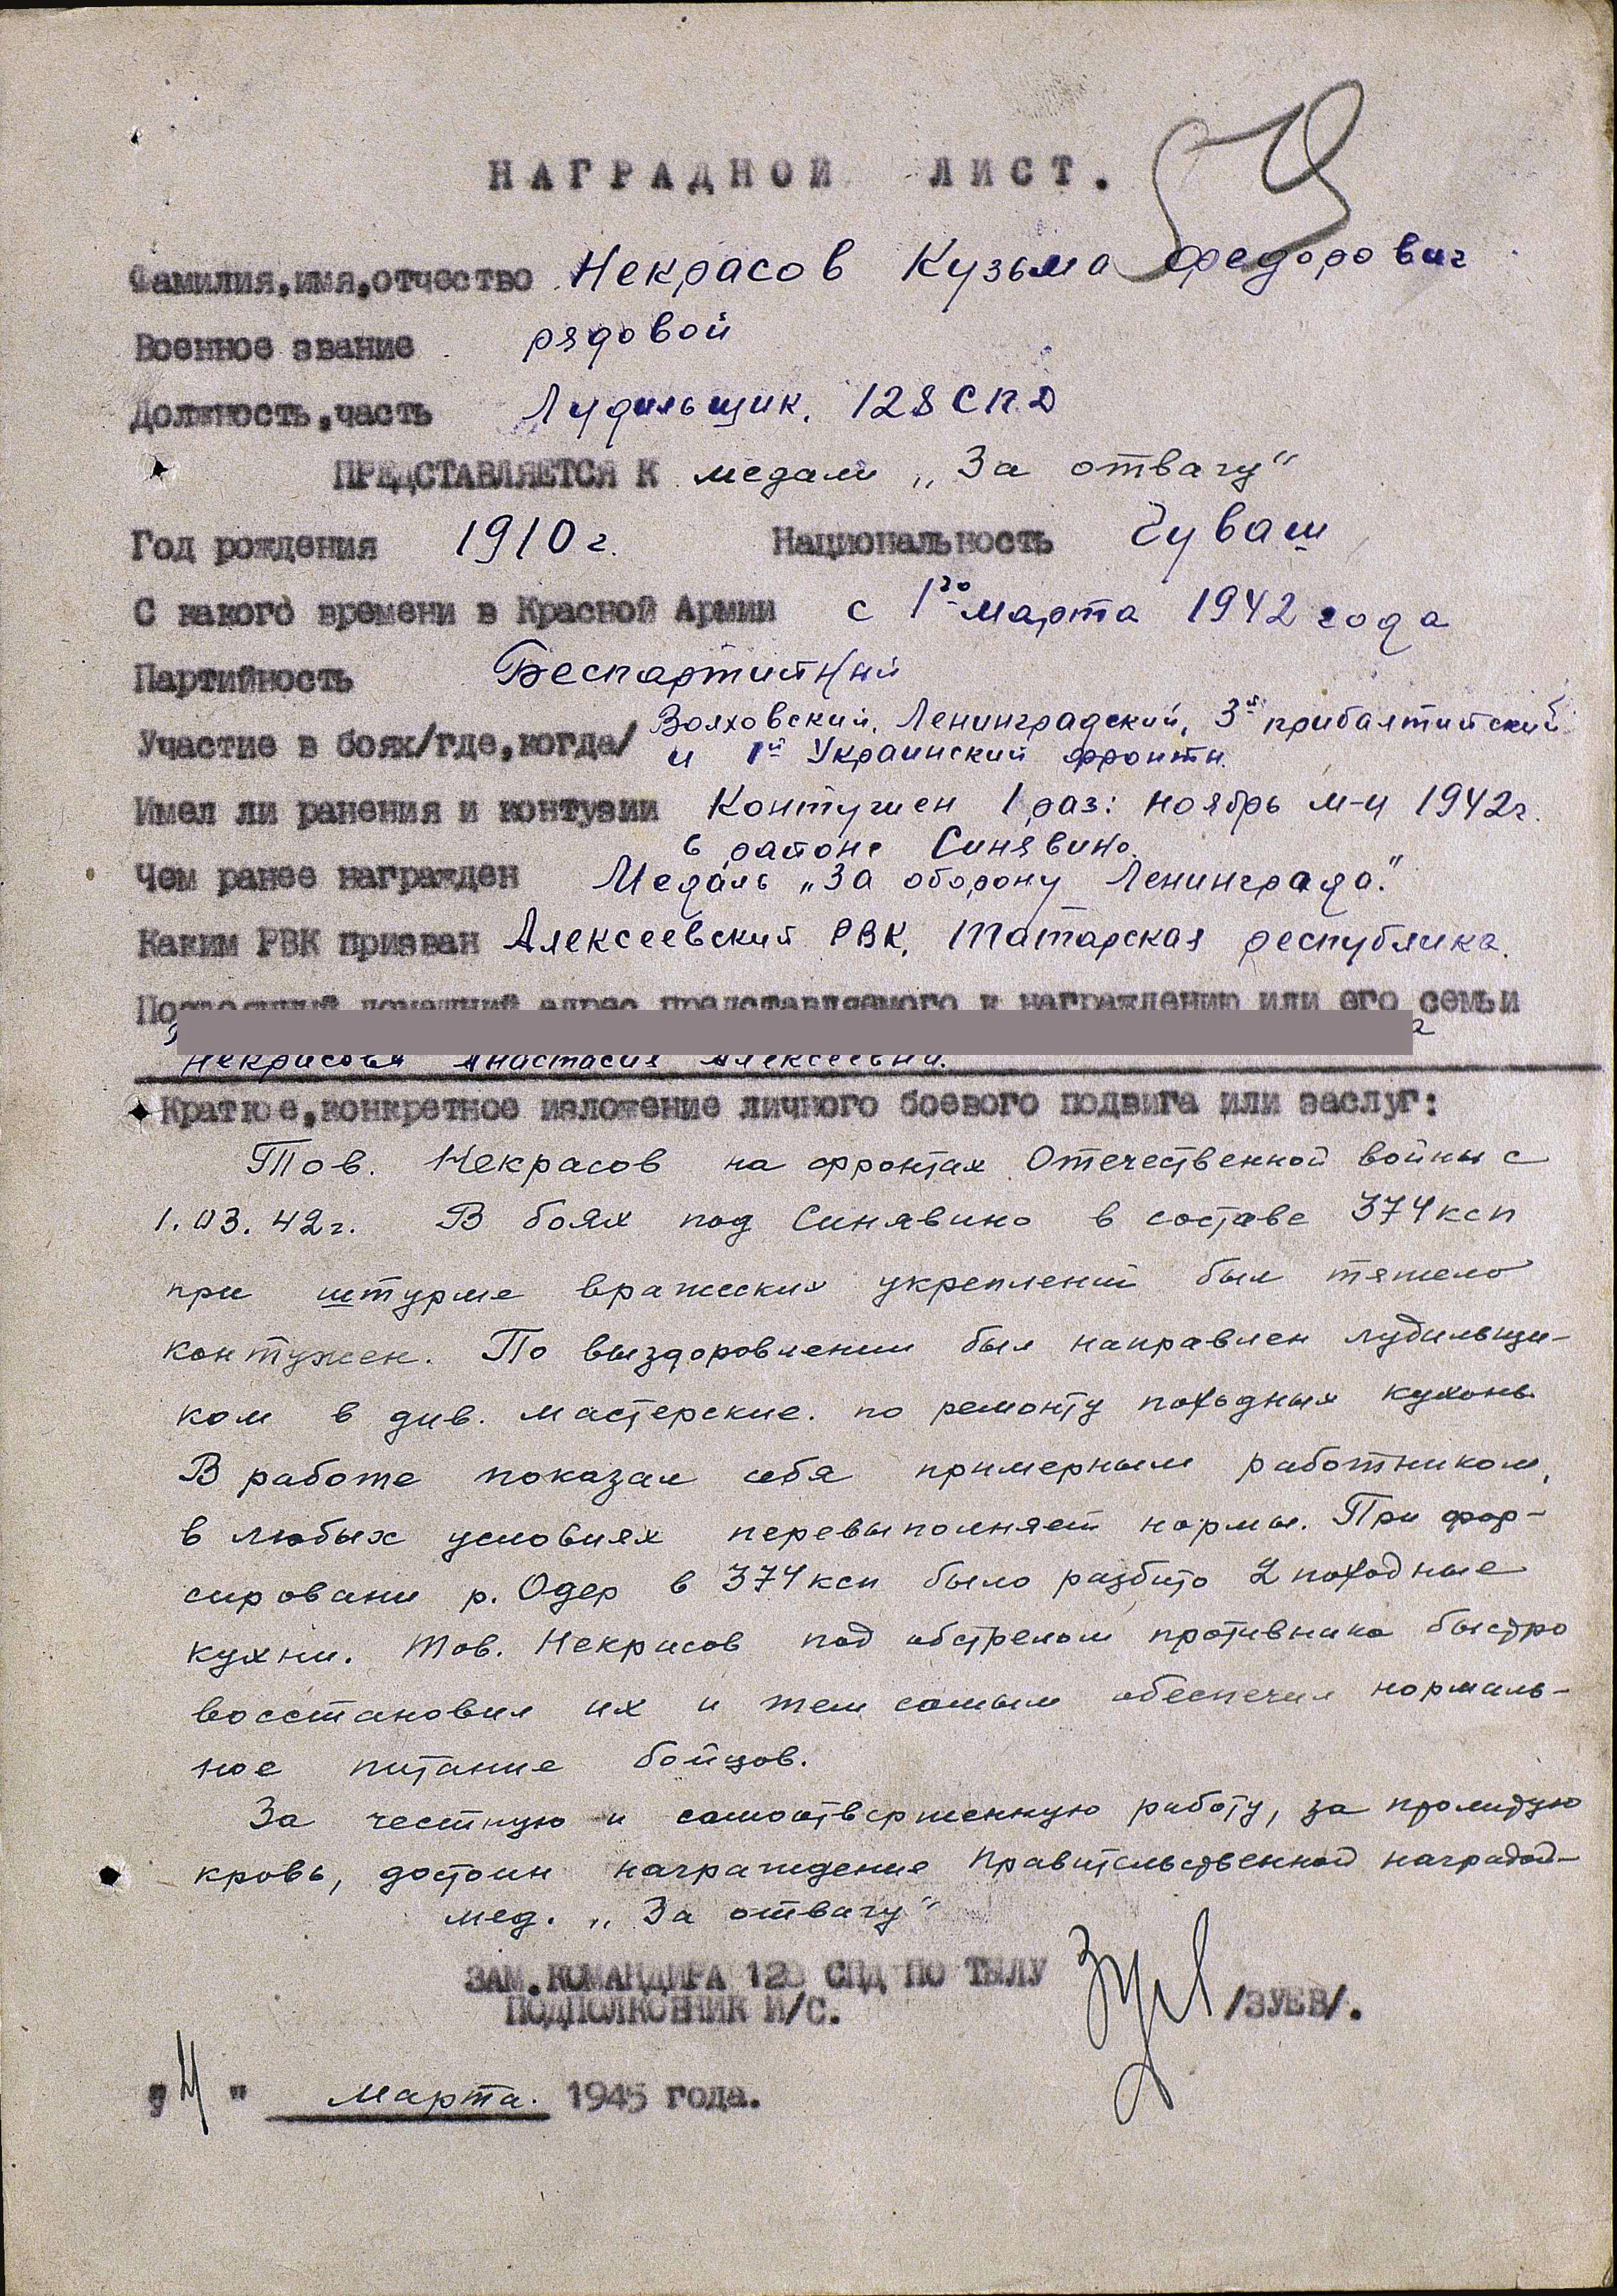 НАГРАДНОЙ ЛИСТ.
Фамилия,имя,отчество Некрасов Кузьма Федорович
Военное звание рядовой
Должность,часть Лудильщик, 128 СПД
ПРЕДСТАВЛЯЕТСЯ К медали „За отвагу“
Год рождения 1910 г. Национальность Чуваш
С какого времени в Красной Армии с 1го марта 1942 года
Партийность Беспартийный
Участие в боях/где,когда/ Волховский, Ленинградский, 3й прибалтийский
и 1й Украинский фронты.
Имел ли ранения и контузии Контужен 1 раз: ноябрь м-ц 1942г.
в районе Синявино.
Чем ранее награжден Медаль „За оборону Ленинграда“.
Каким РВК призван Алексеевский РВК, Татарская республика.
Постоянный домашний адрес представляемого к награждению или его семьи
Некрасова Анастасия Алексеевна.
Краткое,конкретное изложение личного боевого подвига или заслуг:
Тов. Некрасов на фронтах Отечественной войны с
1.03.42г. В боях под Синявино в составе 374 ксп
при штурме вражеских укреплений был тяжело
контужен. По выздоровлении был направлен лудильщи-
ком в див. мастерские. по ремонту походных кухонь
В работе показал себя примерным работником,
в любых условиях перевыполняет нормы. При фор-
сировани р. Одер в 374 ксп было разбито 2 походные
кухни. Тов. Некрасов под обстрелом противника быстро
восстановил их и тем самым обеспечил нормаль-
ное питание бойцов.
За честную и самоотверженную работу, за пролитую
кровь, достоин награждение Правительственной наградой-
мед. „За отвагу“
ЗАМ.КОМАНДИРА 128 СПД ПО ТЫЛУ
ПОДПОЛКОВНИК И/С. Зуев /ЗУЕВ/.
"4" марта. 1945 года.